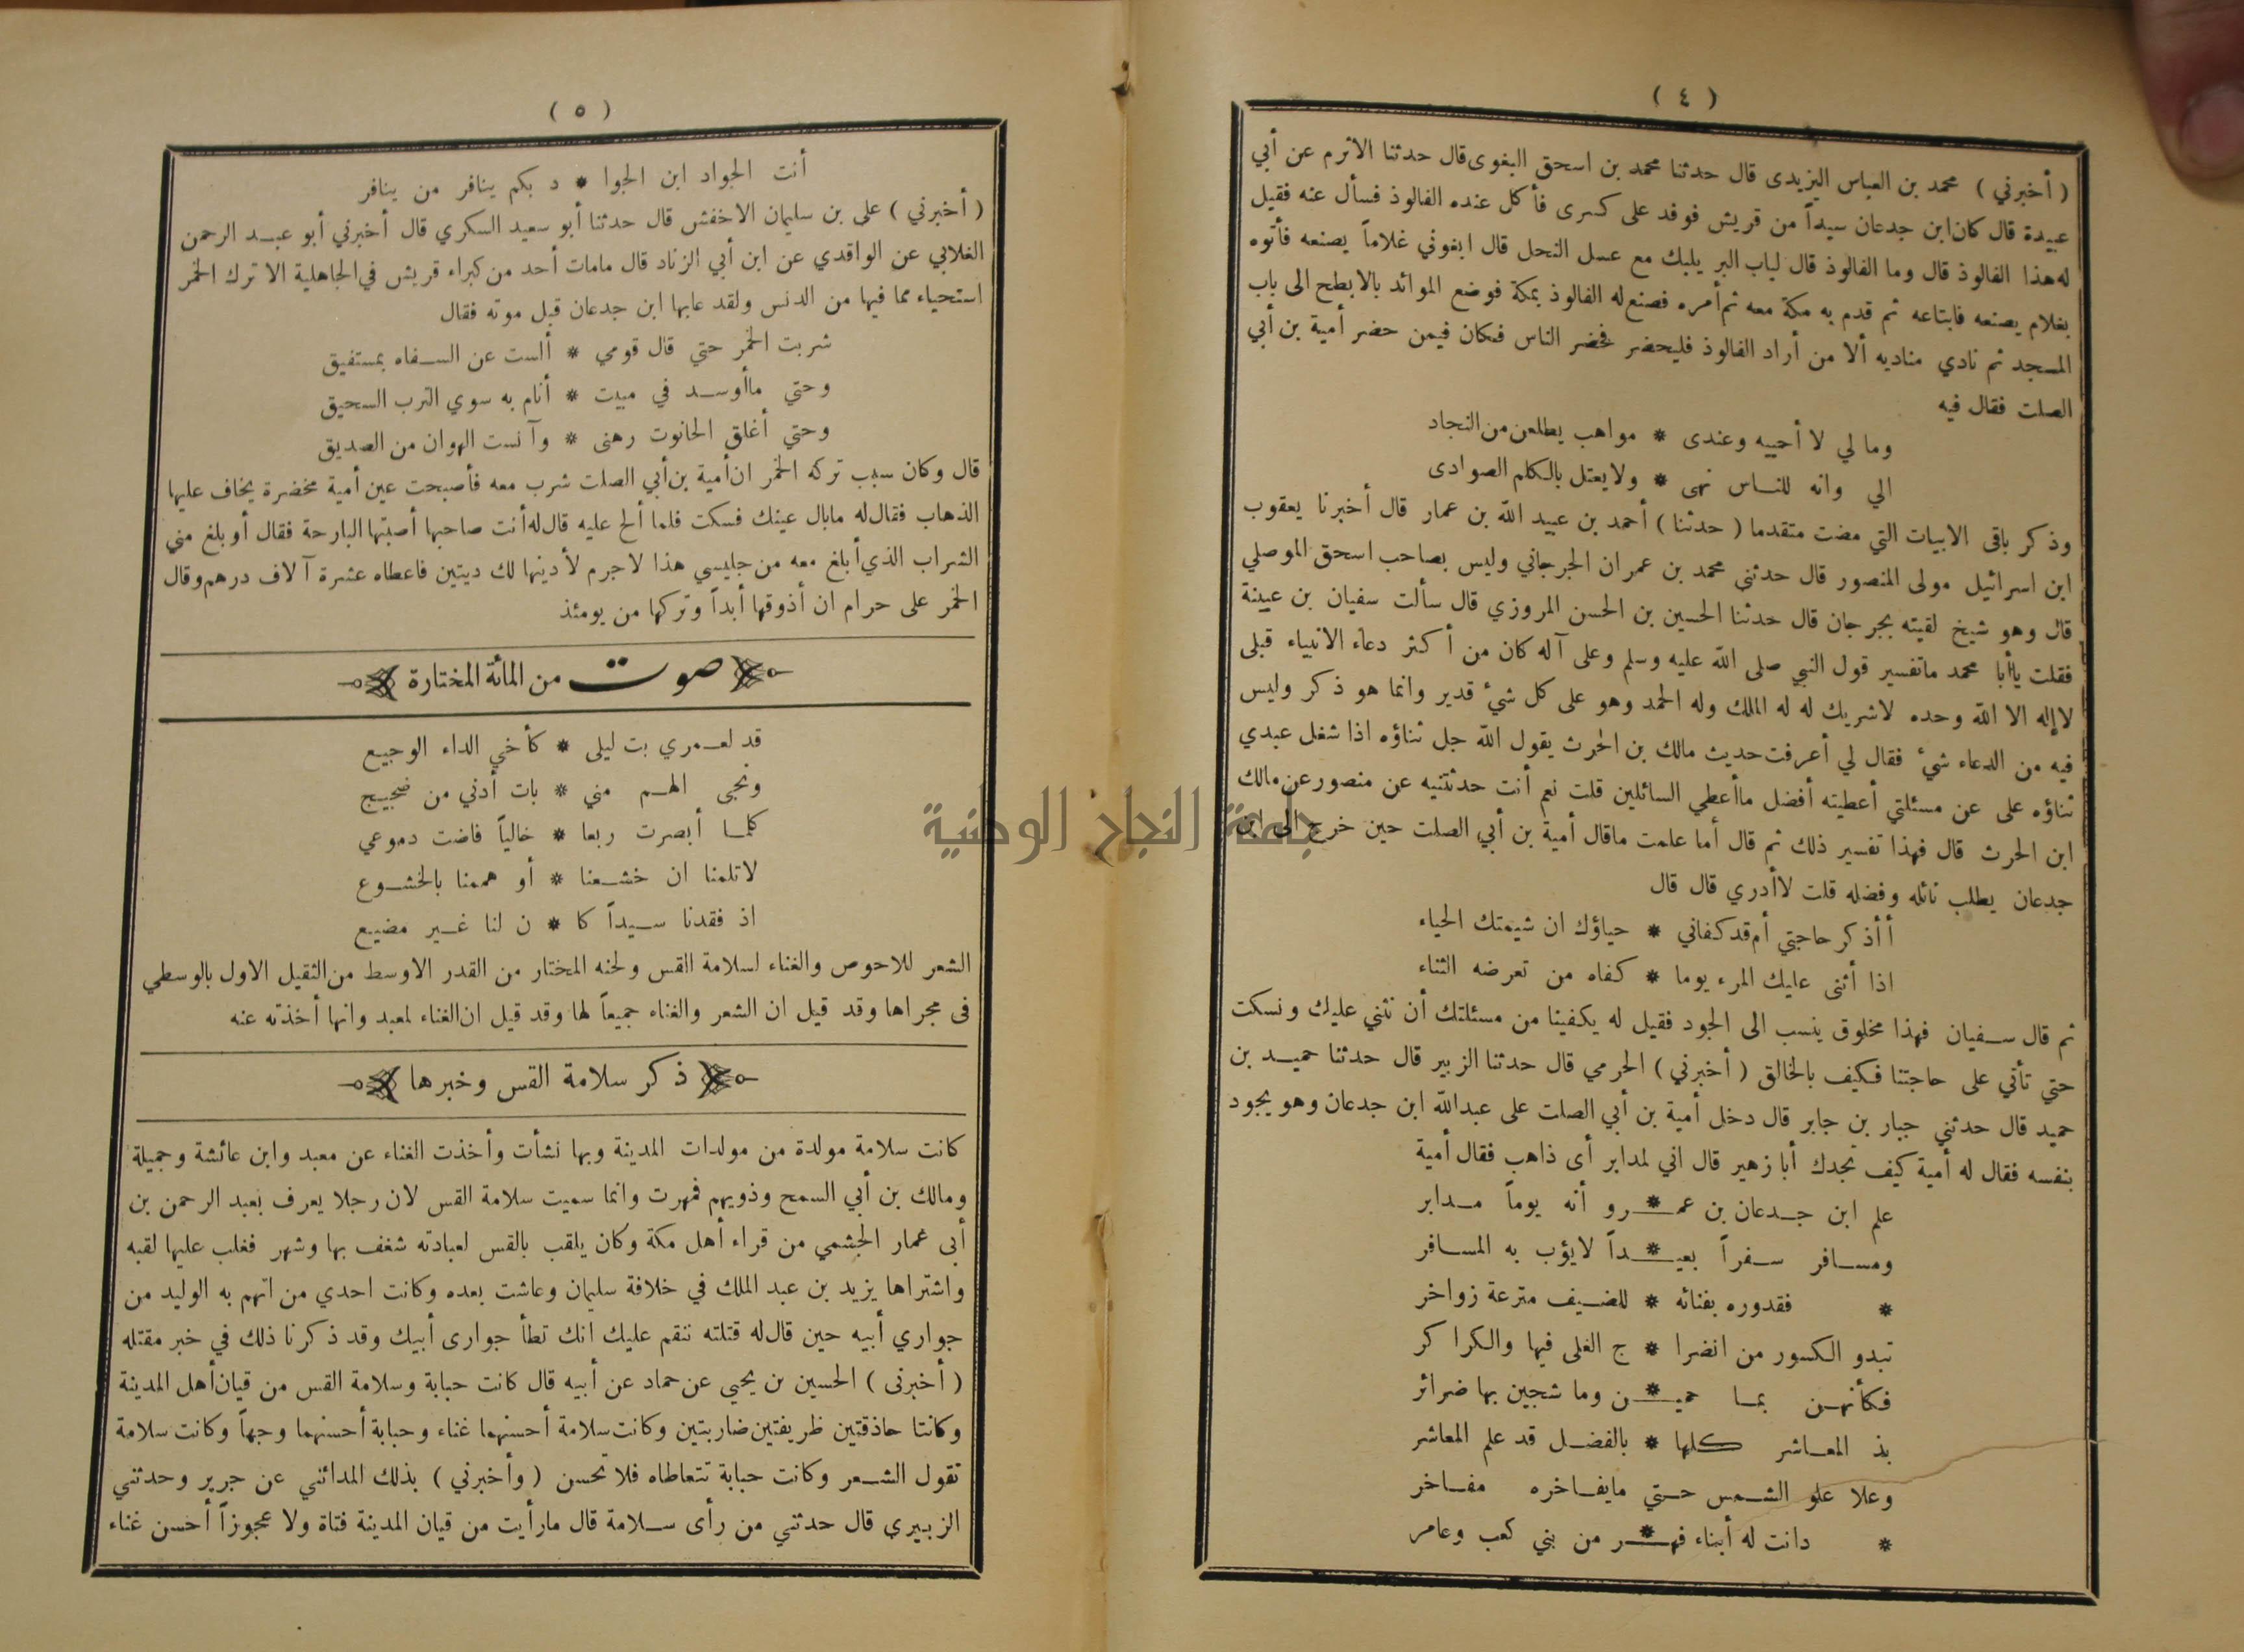 ( ٤ )
( أخبرني ) محمد بن العباس اليزيدى قال حدثنا محمد بن اسحق البغوى قال حدثنا الاثرم عن أبي
عبيدة قال كان ابن جدعان سيداً من قريش فوفد على كسرى فأكل عنده الفالوذ فسأل عنه فقيل
له هذا الفالوذ قال وما الفالوذ قال لباب البر يلبك مع عسل النحل قال ابغوني غلاماً يصنعه فأتوه
بغلام يصنعه فابتاعه ثم قدم به مكة معه ثم أمره فصنع له الفالوذ بمكة فوضع الموائد بالابطح الى باب
المسجد ثم نادي مناديه ألا من أراد الفالوذ فليحضر فحضر الناس فكان فيمن حضر أمية بن أبي
الصلت فقال فيه
وما لي لا أحييه وعندى * مواهب يطلعن من النجاد
الي وانه للناس نهى * ولا يعتل بالكلم الصوادى
وذكر باقى الابيات التي مضت متقدما ( حدثنا ) أحمد بن عبيد الله بن عمار قال أخبرنا يعقوب
ابن اسرائيل مولى المنصور قال حدثنى محمد بن عمران الجرجاني وليس بصاحب اسحق الموصلي
قال وهو شيخ لقيته بجرجان قال حدثنا الحسين بن الحسن المروزي قال سألت سفيان بن عيينة
فقلت ياأبا محمد ماتفسير قول النبي صلى الله عليه وسلم وعلى آله كان من أكثر دعاء الانبياء قبلى
لاإله الا الله وحده لاشريك له له الملك وله الحمد وهو على كل شيء قدير وانما هو ذكر وليس
فيه من الدعاء شيء فقال لي أعرفت حديث مالك بن الحرث يقول الله جل ثناؤه اذا شغل عبدي
ثناؤه على عن مسئلتي أعطيته أفضل ماأعطي السائلين قلت نعم أنت حدثتنيه عن منصور عن مالك
ابن الحرث قال فهذا تفسير ذلك ثم قال أما علمت ماقال أمية بن أبي الصلت حين خرج الى ابن
جدعان يطلب نائله وفضله قلت لاأدري قال قال
أأذكر حاجتي أم قد كفاني * حياؤك ان شيمتك الحياء
اذا أثنى عليك المرء يوما * كفاه من تعرضه الثناء
ثم قال سفيان فهذا مخلوق ينسب الى الجود فقيل له يكفينا من مسئلتك أن نثني عليك ونسكت
حتي تأتي على حاجتنا فكيف بالخالق ( أخبرني ) الحرمي قال حدثنا الزبير قال حدثنا حميد بن
حميد قال حدثني جبار بن جابر قال دخل أمية بن أبي الصلت على عبدالله ابن جدعان وهو يجود
بنفسه فقال له أمية كيف تجدك أبا زهير قال اني لمدابر أى ذاهب فقال أمية
علم ابن جدعان بن عمـ * ـرو أنه يوماً مدابر
ومسافر سفراً بعيـ * ـداً لايؤب به المسافر
* فقدوره بفنائه * للضيف مترعة زواخر
تبدو الكسور من انضرا * ج الغلى فيها والكراكر
فكأنهن بما حميـ * ـن وما شجين بها ضرائر
بذ المعاشر كلها * بالفضل قد علم المعاشر
وعلا علو الشمس حتي مايفاخره مفاخر
* دانت له أبناء فهـ * ـر من بني كعب وعامر
( ٥ )
أنت الجواد ابن الجوا * د بكم ينافر من ينافر
( أخبرني ) على بن سليمان الاخفش قال حدثنا أبو سعيد السكري قال أخبرني أبو عبد الرحمن
الغلابي عن الواقدي عن ابن أبي الزناد قال مامات أحد من كبراء قريش في الجاهلية الا ترك الخمر
استحياء مما فيها من الدنس ولقد عابها ابن جدعان قبل موته فقال
شربت الخمر حتي قال قومي * ألست عن السفاه بمستفيق
وحتي ماأوسد في مبيت * أنام به سوي الترب السحيق
وحتي أغلق الحانوت رهنى * وآنست الهوان من الصديق
قال وكان سبب تركه الخمر ان أمية بن أبي الصلت شرب معه فأصبحت عين أمية مخضرة يخاف عليها
الذهاب فقال له مابال عينك فسكت فلما ألح عليه قال له أنت صاحبها أصبتها البارحة فقال أو بلغ مني
الشراب الذي أبلغ معه من جليسي هذا لاجرم لأدينها لك ديتين فاعطاه عشرة آلاف درهم وقال
الخمر على حرام ان أذوقها أبداً وتركها من يومئذ
صوت من المأئة المختارة
قد لعمري بت ليلى * كأخي الداء الوجيع
ونجى الهم مني * بات أدني من ضجيج
كلما أبصرت ربعا * خالياً فاضت دموعي
لاتلمنا ان خشعنا * أو هممنا بالخشوع
اذ فقدنا سيداً كا * ن لنا غير مضيع
الشعر للاحوص والغناء لسلامة القس ولحنه المختار من القدر الاوسط من الثقيل الاول بالوسطي
فى مجراها وقد قيل ان الشعر والغناء جميعاً لها وقد قيل ان الغناء لمعبد وانها أخذته عنه
ذكر سلامة القس وخبرها
كانت سلامة مولدة من مولدات المدينة وبها نشأت وأخذت الغناء عن معبد وابن عائشة وجميلة
ومالك بن أبي السمح وذويهم فمهرت وانما سميت سلامة القس لان رجلا يعرف بعبد الرحمن بن
أبى عمار الجشمي من قراء أهل مكة وكان يلقب بالقس لعبادته شغف بها وشهر فغلب عليها لقبه
واشتراها يزيد بن عبد الملك في خلافة سليمان وعاشت بعده وكانت احدي من اتهم به الوليد من
جواري أبيه حين قال له قتلته ننقم عليك انك تطأ جوارى أبيك وقد ذكرنا ذلك في خبر مقتله
( أخبرنى ) الحسين بن يحيي عن حماد عن أبيه قال كانت حبابة وسلامة القس من قيان أهل المدينة
وكانتا حاذقتين ظريفتين ضاربتين وكانت سلامة أحسنهما غناء وحبابة أحسنهما وجهاً وكانت سلامة
تقول الشعر وكانت حبابة تتعاطاه فلا تحسن ( وأخبرني ) بذلك المدائني عن جرير وحدثني
الزبيرى قال حدثني من رأى سلامة قال مارأيت من قيان المدينة فتاة ولا عجوزاً أحسن غناء
جامعة النجاح الوطنية